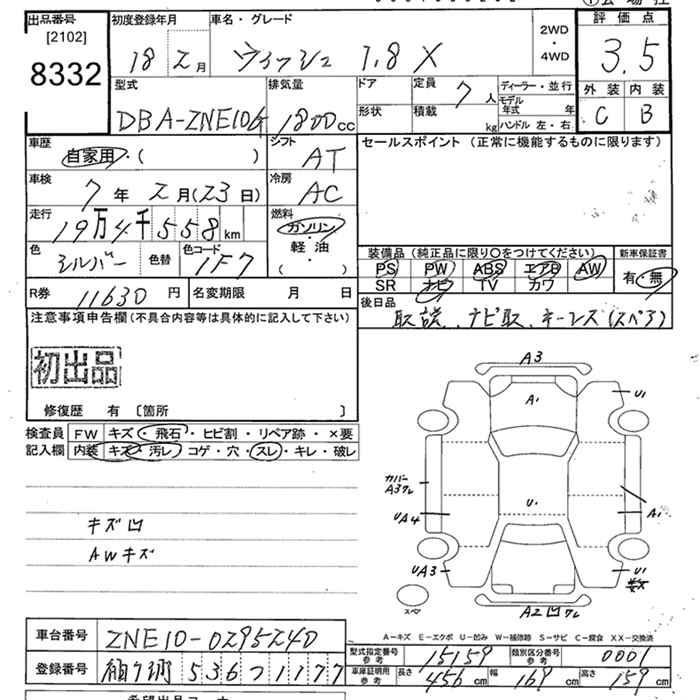 出品番号
[2102]
8332
初度登録年月
18 2 月
車名・グレード
ウィッシュ 1.8 X
2WD
・
4WD
評価点
3.5
外装 内装
C B
型式
DBA-ZNE10G
排気量
1800cc
ドア
形状
定員 7人
積載 kg
ディーラー・並行
モデル年式 年
ハンドル 左・右
車歴
自家用・( )
シフト
AT
車検
7年 2月(23日)
冷房
AC
走行
19万4千558km
燃料
ガソリン
軽・油
( )
色
シルバー
色替
色コード
1F7
セールスポイント (正常に機能するものに限ります)
装備品 (純正品に限り○をつけてください)
PS PW ABS エアB AW
SR ナビ TV カワ
新車保証書
有・無
R券 11630円
名変期限 月 日
後日品
取説、ナビ取、キーレス(スペア)
注意事項申告欄(不具合内容等は具体的に記入して下さい)
初出品
修復歴 有 [箇所 ]
検査員 FW キズ・飛石・ヒビ割・リペア跡・×要
記入欄 内装 キズ・汚レ・コゲ・穴・スレ・キレ・破レ
キズ凹
AWキズ
A3
A1
U1
カバー
A3ワレ
UA4
U1
A1
UA3
U1
スペア
A2凹ワレ
A-キズ E-エクボ U-凹み W-補修跡 S-サビ C-腐食 XX-交換済
車台番号 ZNE10-0295240
登録番号 536 1177
型式指定番号 参考 15159
類別区分番号 参考 0001
車庫証明用 参考 長さ 456cm 幅 169cm 高さ 159cm